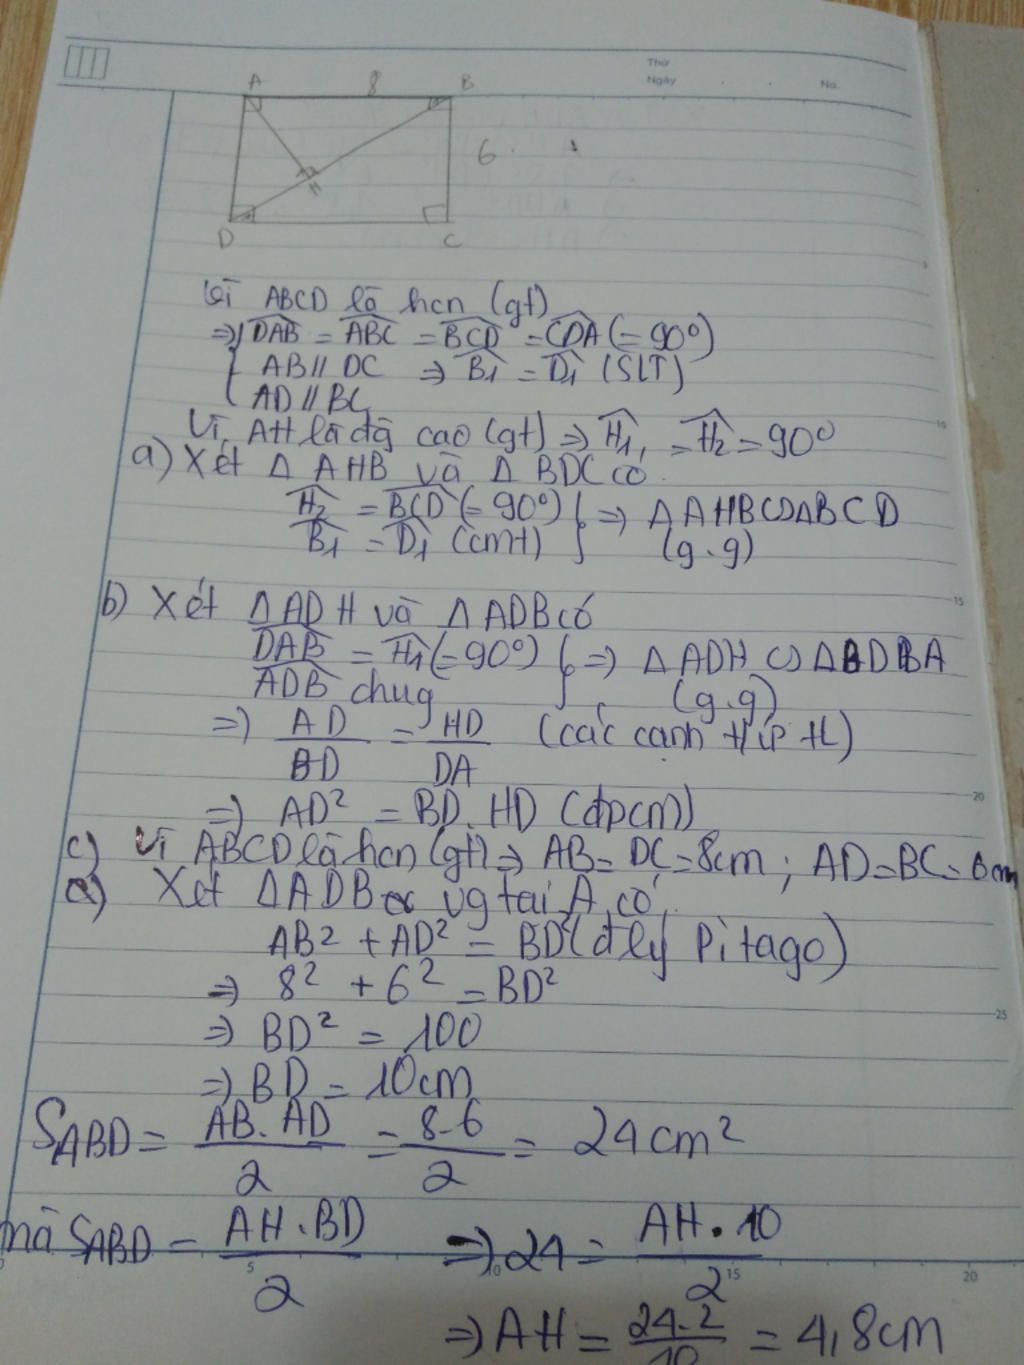 Thứ
Ngày
No.
A 8 B
6
H
D C
Vì ABCD là hcn (gt)
=> DAB = ABC = BCD = CDA (= 90°)
AB // DC => B1 = D1 (SLT)
AD // BC
Vì AH là đg cao (gt) => H1 = H2 = 90°
a) Xét Δ AHB và Δ BDC có
H2 = BCD (= 90°) } => Δ AHB ∽ Δ BCD
B1 = D1 (cmt) (g.g)
b) Xét Δ ADH và Δ ADB có
DAB = H1 (= 90°) } => Δ ADH ∽ Δ BDA
ADB chug (g.g)
=> AD/BD = HD/DA (các cạnh t/ứ tL)
=> AD² = BD.HD (đpcm)
c) Vì ABCD là hcn (gt) => AB = DC = 8cm ; AD = BC = 6cm
Xét Δ ADB vg tại A có
AB² + AD² = BD² (đ lý Pitago)
=> 8² + 6² = BD²
=> BD² = 100
=> BD = 10cm
S ABD = AB.AD/2 = 8.6/2 = 24 cm²
mà S ABD = AH.BD/2 => 24 = AH.10/2
=> AH = 24.2/10 = 4,8cm
5
10
15
20
25
5
10
15
20